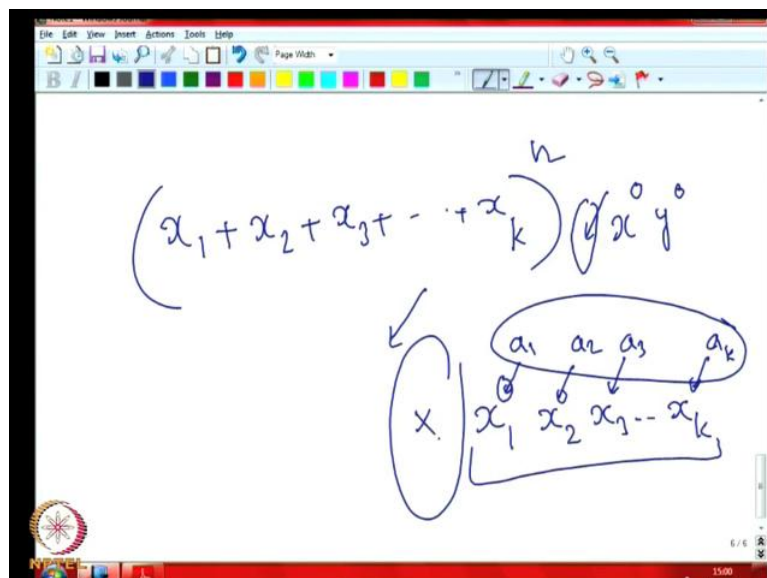 File Edit View Insert Actions Tools Help
Page Width
B I
(x₁ + x₂ + x₃ + - · + x_k)ⁿ x⁰ y⁰
a₁ a₂ a₃ a_k
x x₁ x₂ x₃ -- x_k
6 / 6
NPTEL
15:00